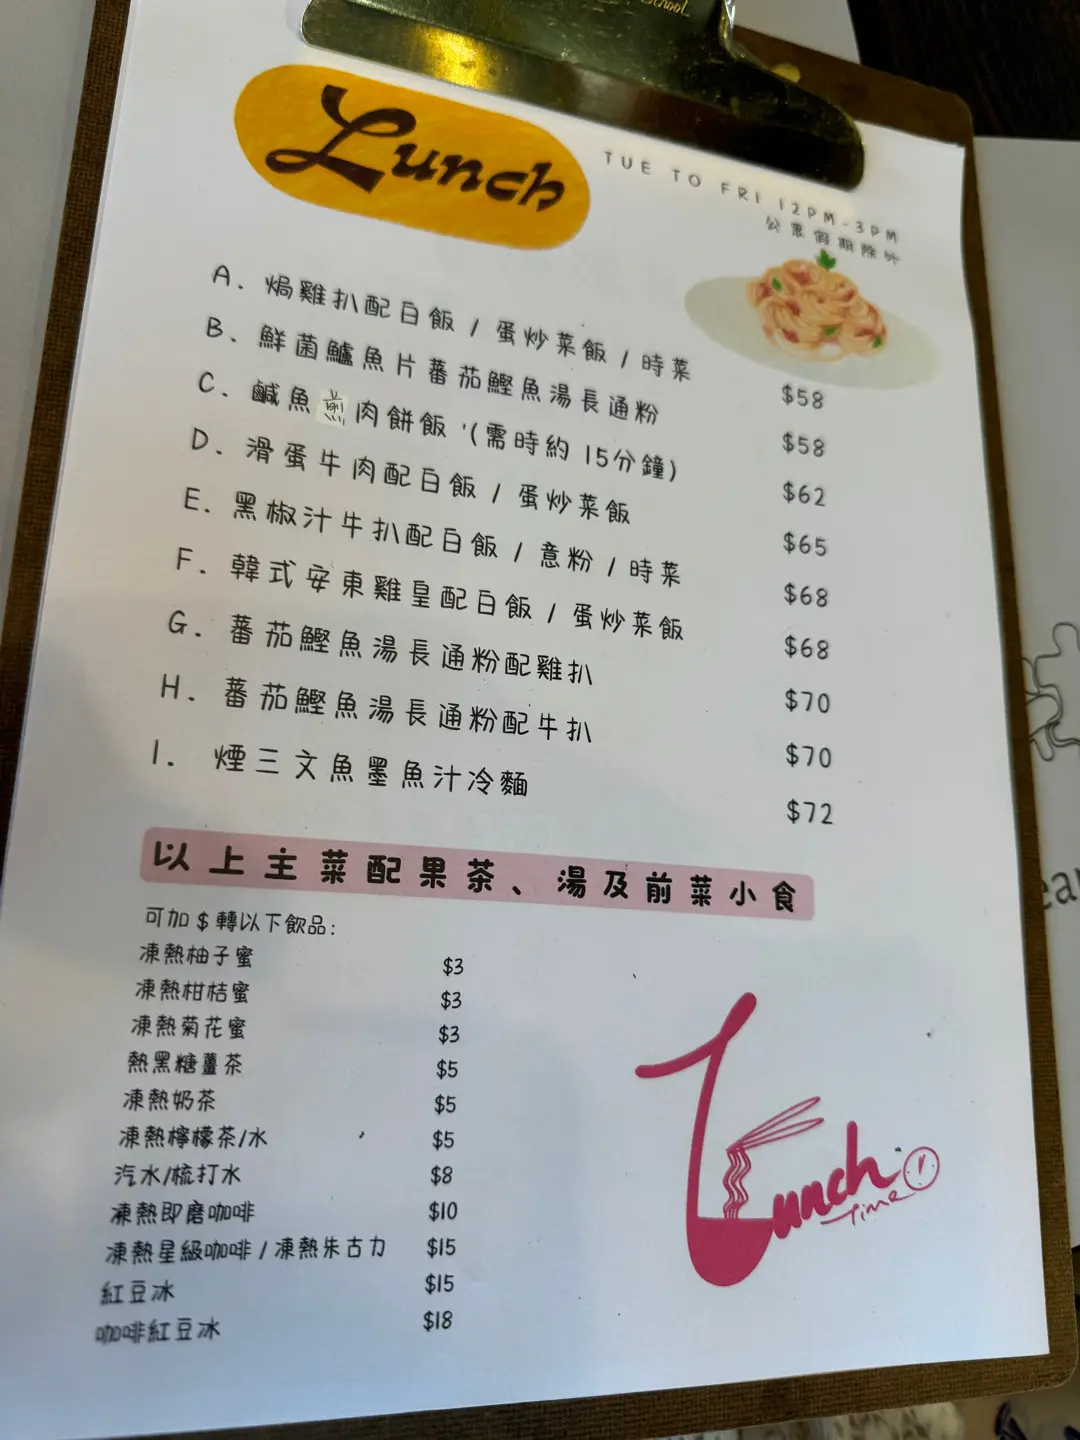 School
Lunch
TUE TO FRI 12PM-3PM
公眾假期除外
A. 焗雞扒配白飯 / 蛋炒菜飯 / 時菜 $58
B. 鮮菌鱸魚片蕃茄鰹魚湯長通粉 $58
C. 鹹魚煎肉餅飯 '(需時約 15分鐘) $62
D. 滑蛋牛肉配白飯 / 蛋炒菜飯 $65
E. 黑椒汁牛扒配白飯 / 意粉 / 時菜 $68
F. 韓式安東雞皇配白飯 / 蛋炒菜飯 $68
G. 蕃茄鰹魚湯長通粉配雞扒 $70
H. 蕃茄鰹魚湯長通粉配牛扒 $70
I. 煙三文魚墨魚汁冷麵 $72
以上主菜配果茶、湯及前菜小食
可加 $ 轉以下飲品:
凍熱柚子蜜 $3
凍熱柑桔蜜 $3
凍熱菊花蜜 $3
熱黑糖薑茶 $5
凍熱奶茶 $5
凍熱檸檬茶/水 $5
汽水/梳打水 $8
凍熱即磨咖啡 $10
凍熱星級咖啡 / 凍熱朱古力 $15
紅豆冰 $15
咖啡紅豆冰 $18
Lunch
Time